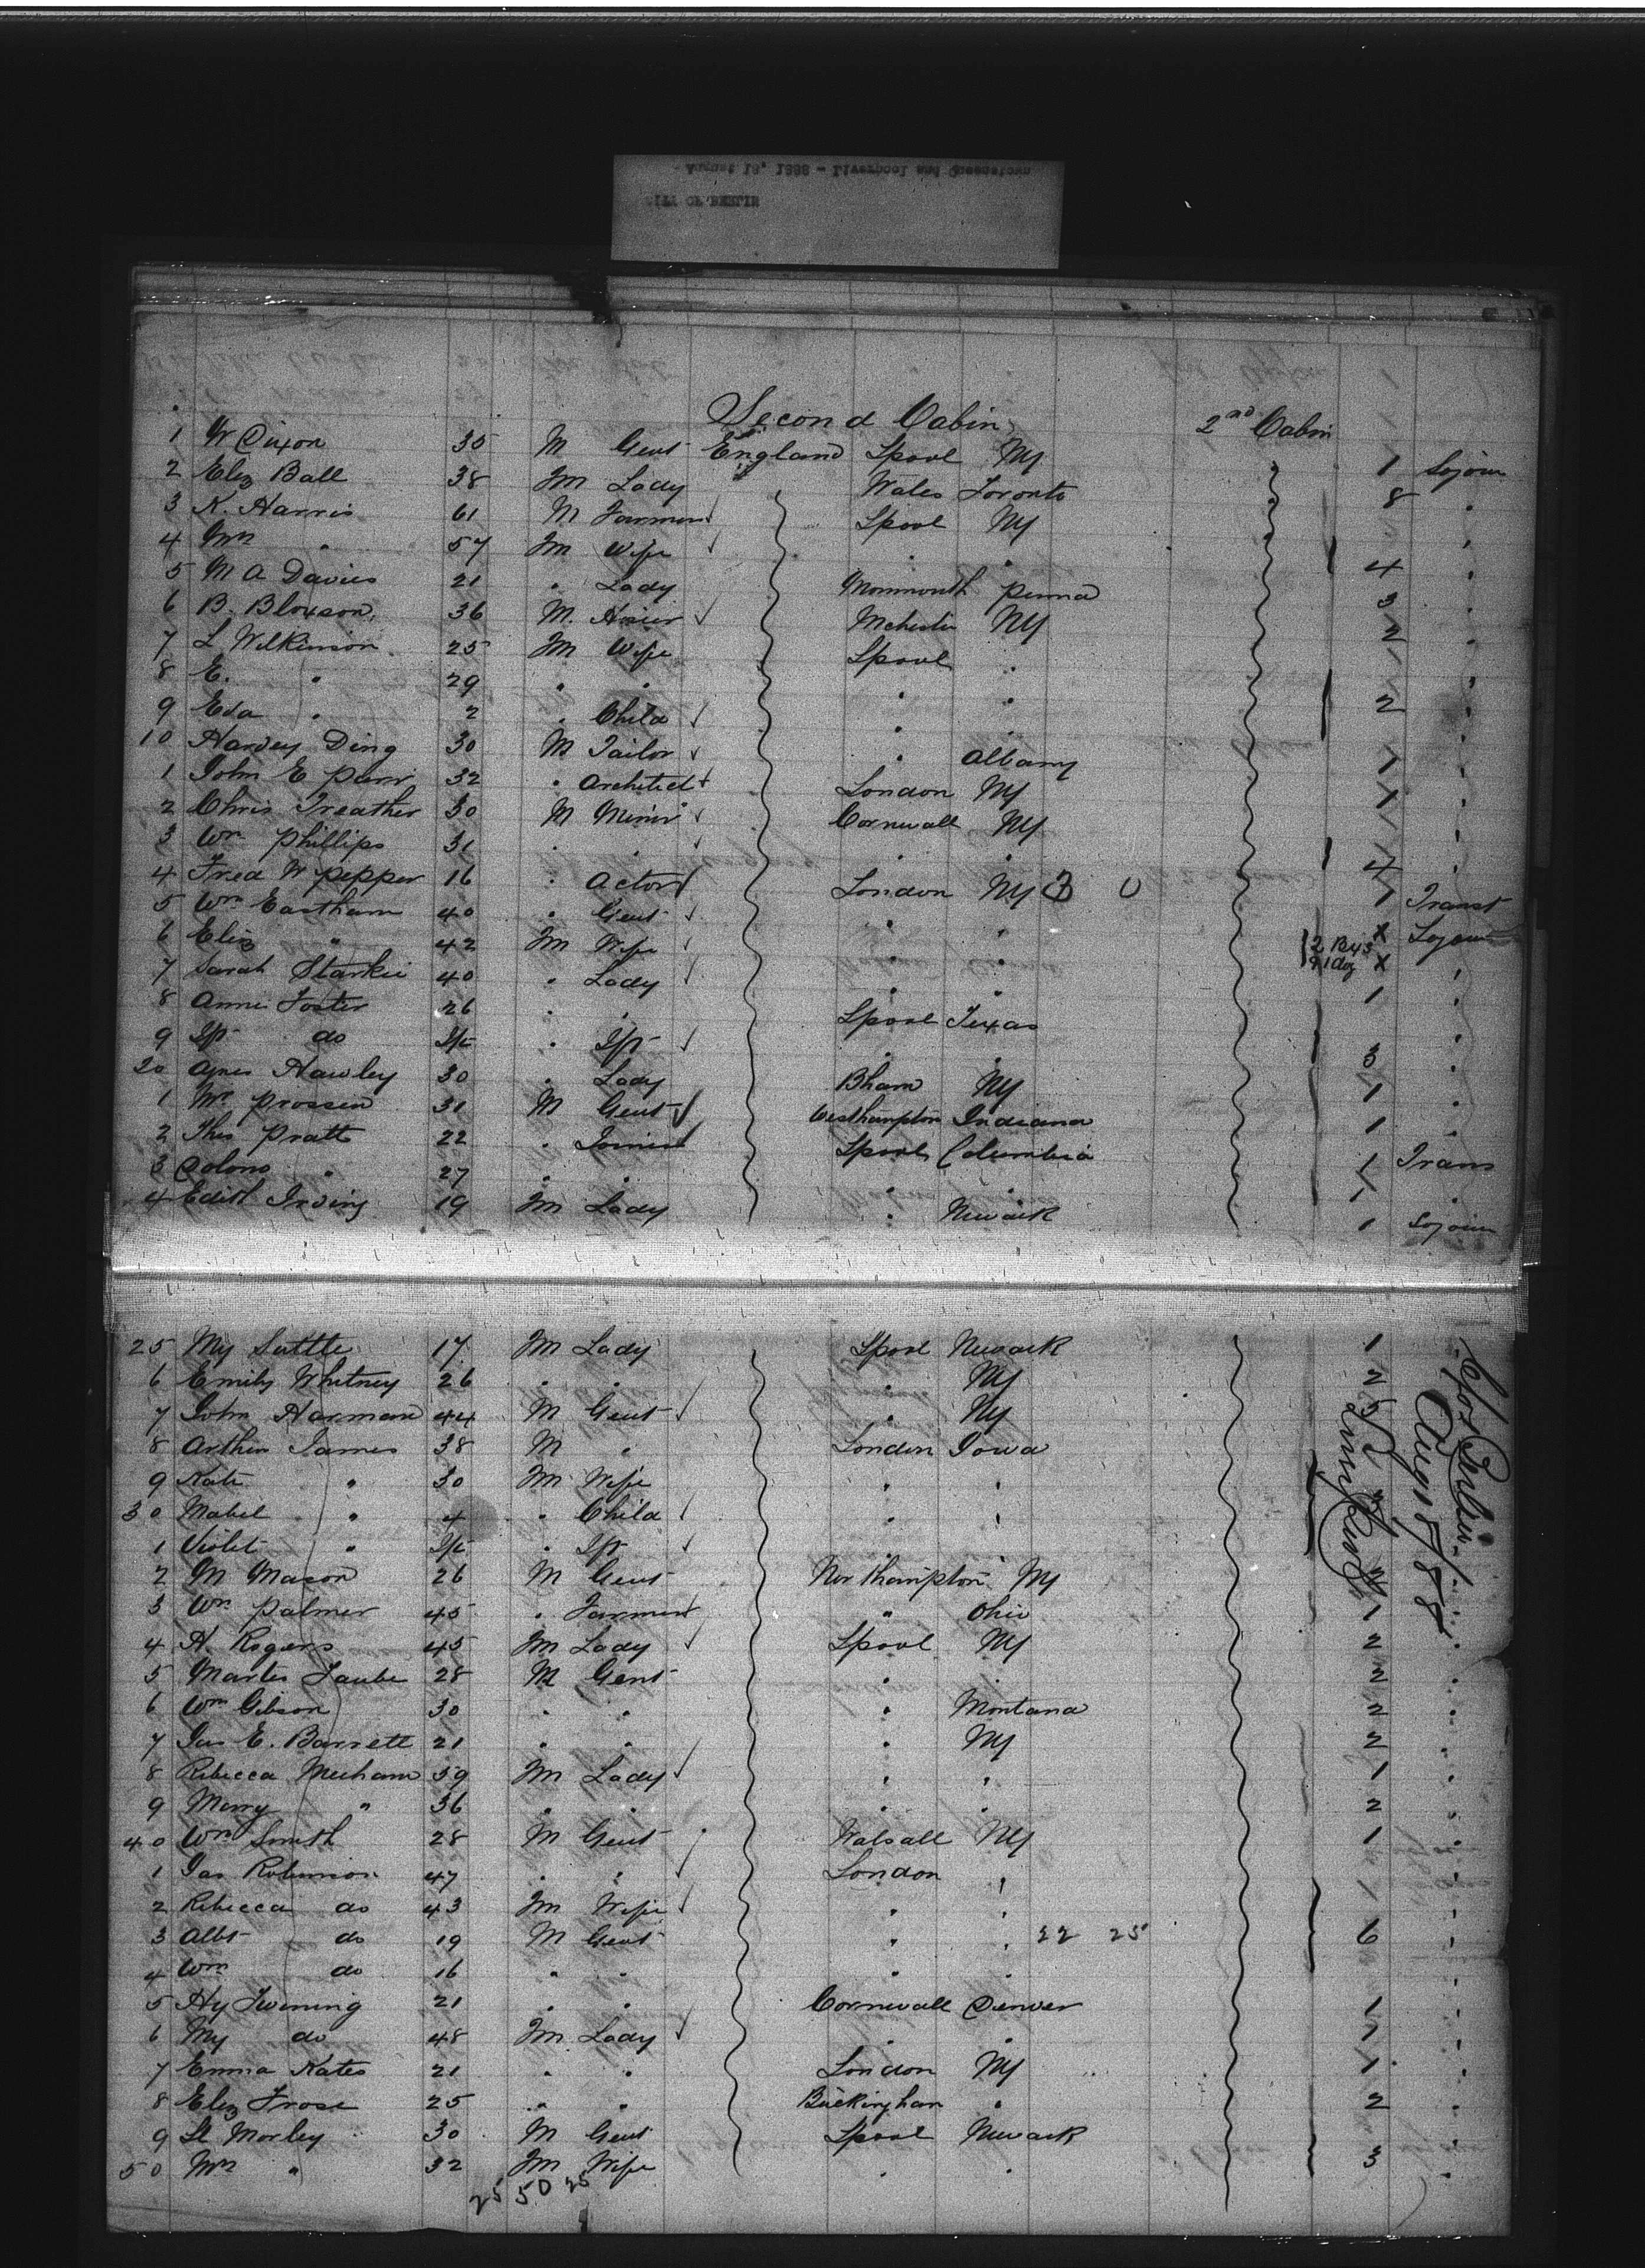 Second Cabin 2nd Cabin
1 W Dixon 35 M Gent England Lpool NY 1 Sojour
2 Eliz Ball 38 Fm Lady Wales Toronto 8 "
3 K. Harris 61 M Farmer Lpool NY "
4 Mrs " 57 Fm Wife " " 4 "
5 M A Davies 21 " Lady Monmouth Penna 3 "
6 B. Bloxson 36 M. Mchester NY 2 "
7 L Wilkinson 25 Fm Wife Lpool " "
8 E. " 29 " " " " 2 "
9 Eda " 2 " Child " " "
10 Harvey Ding 30 M Tailor " Albany 1 "
1 John E Parr 32 " Architect London NY 1 "
2 Chris Treather 30 M Miner Cornwall NY "
3 Wm Phillips 31 " " " " 4 "
4 Fred W Pepper 16 " Actor London NY 3 0 1 Transt
5 Wm Eastham 40 " Gent " " X Sojour
6 Eliz " 42 Fm Wife " " 2 Bxs X
7 Sarah Starkie 40 " Lady " " 1 "
8 Annie Foster 26 " " Lpool Texas "
9 Ift do Ift " Ift " " 3 "
20 Agnes Hawley 30 " Lady Bham NY 1 "
1 Mr Prossen 31 M Gent Westhampton Indiana 1 "
2 Thos Pratt 22 " Joiner Lpool Columbia 1 Trans
3 " 27 " " " " 1 "
4 Edith Irving 19 Fm Lady " Newark 1 Sojour
25 My Suttle 17 Fm Lady Lpool Newark 1
6 Emily Whitney 26 " " " NY 2
7 John Harman 44 M Gent " NY 5
8 Arthur James 38 M " London Iowa
9 Kate " 30 Fm Wife " "
30 Mabel " 4 " Child " "
1 Violet " Ift " Ift "
2 M Mason 26 M Gent Northampton NY
3 Wm Palmer 45 " Farmer " Ohio 1
4 H. Rogers 45 Fm Lady Lpool NY 2 "
5 Martis Taube 28 M Gent " " 2 "
6 Wm Gibson 30 " " " Montana 2 "
7 Jas E. Barrett 21 " " " NY 2 "
8 Rebecca Meeham 39 Fm Lady " " 1 "
9 Marry " 36 " " " " 2 "
40 Wm Smith 28 M Gent Walsall NY 1 "
1 Jas Robinson 47 " " London " 1 "
2 Rebecca do 43 Fm Wife " " "
3 Albt do 19 M Gent " " 22 25 6 "
4 Wm do 16 " " " " "
5 Hy Twining 21 " " Cornwall Denver 1 "
6 My do 48 Fm Lady " " 1 "
7 Emma Kates 21 " " London NY 1 "
8 Eliz Frost 25 " " Buckingham " 2 "
9 St Morley 30 M Gent Lpool Newark "
50 Mrs " 32 Fm Wife " " 3 "
25 50 25
C/o Berlin
Aug 18/88